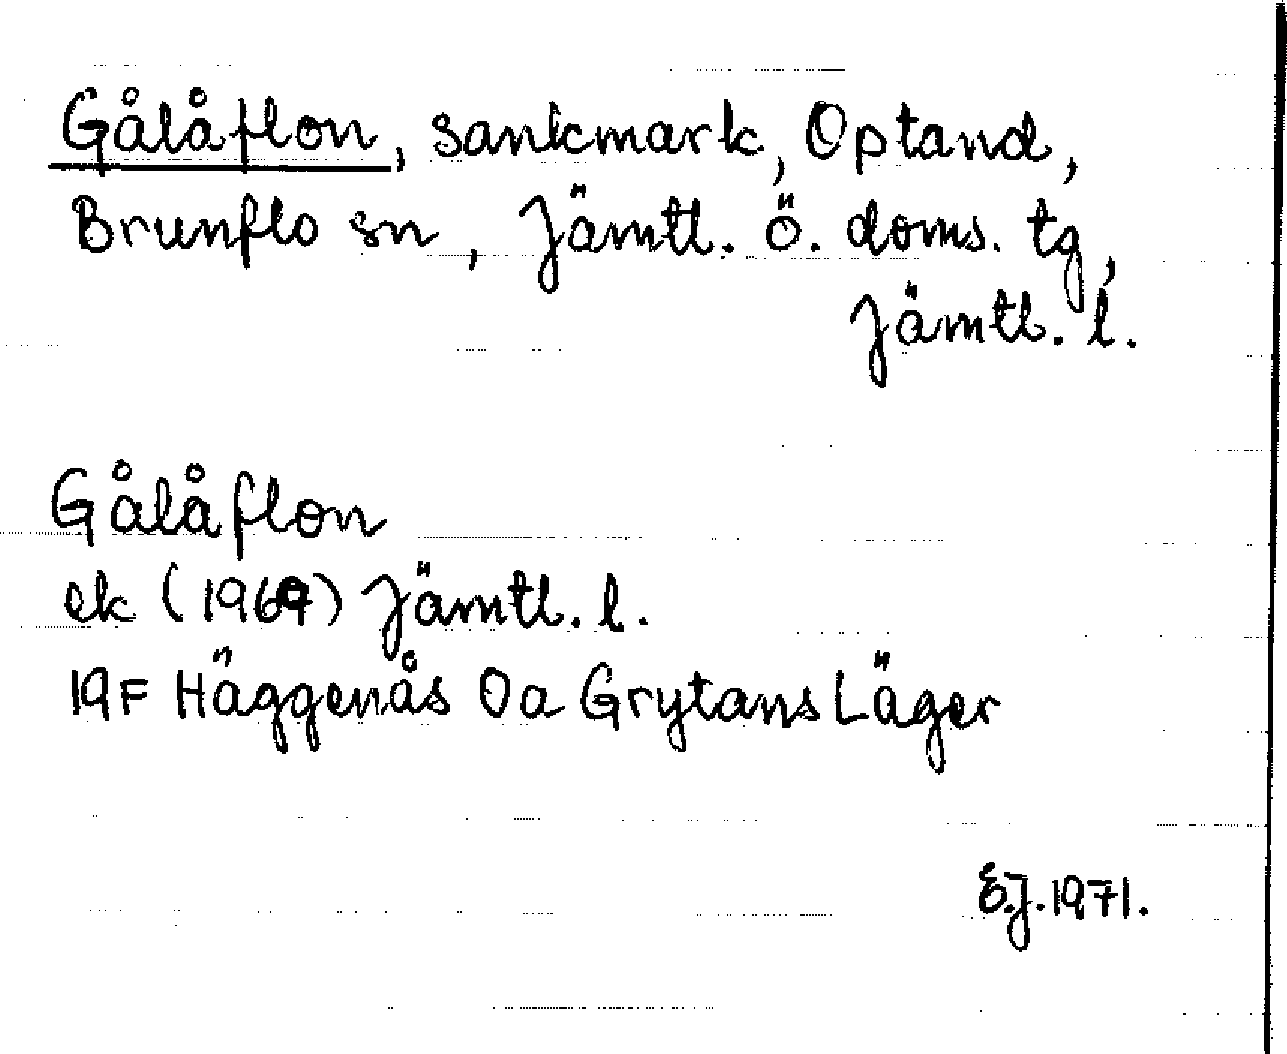 Gålåflon, sankmark, Optand,
Brunflo sn, Jämtl. ö. doms. tg,
Jämtl. l.
Gålåflon
ek (1969) Jämtl. l.
19F Häggenås 0a Grytans Läger
E.J. 1971.